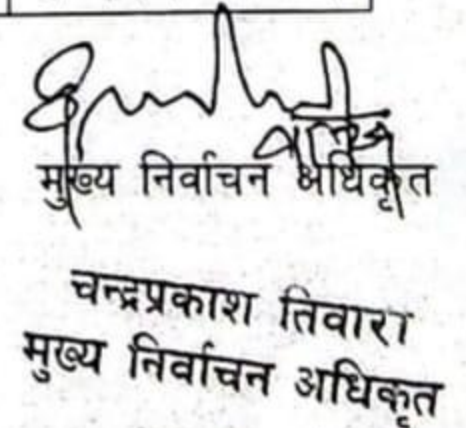 मुख्य निर्वाचन अधिकृत
चन्द्रप्रकाश तिवारा
मुख्य निर्वाचन अधिकृत